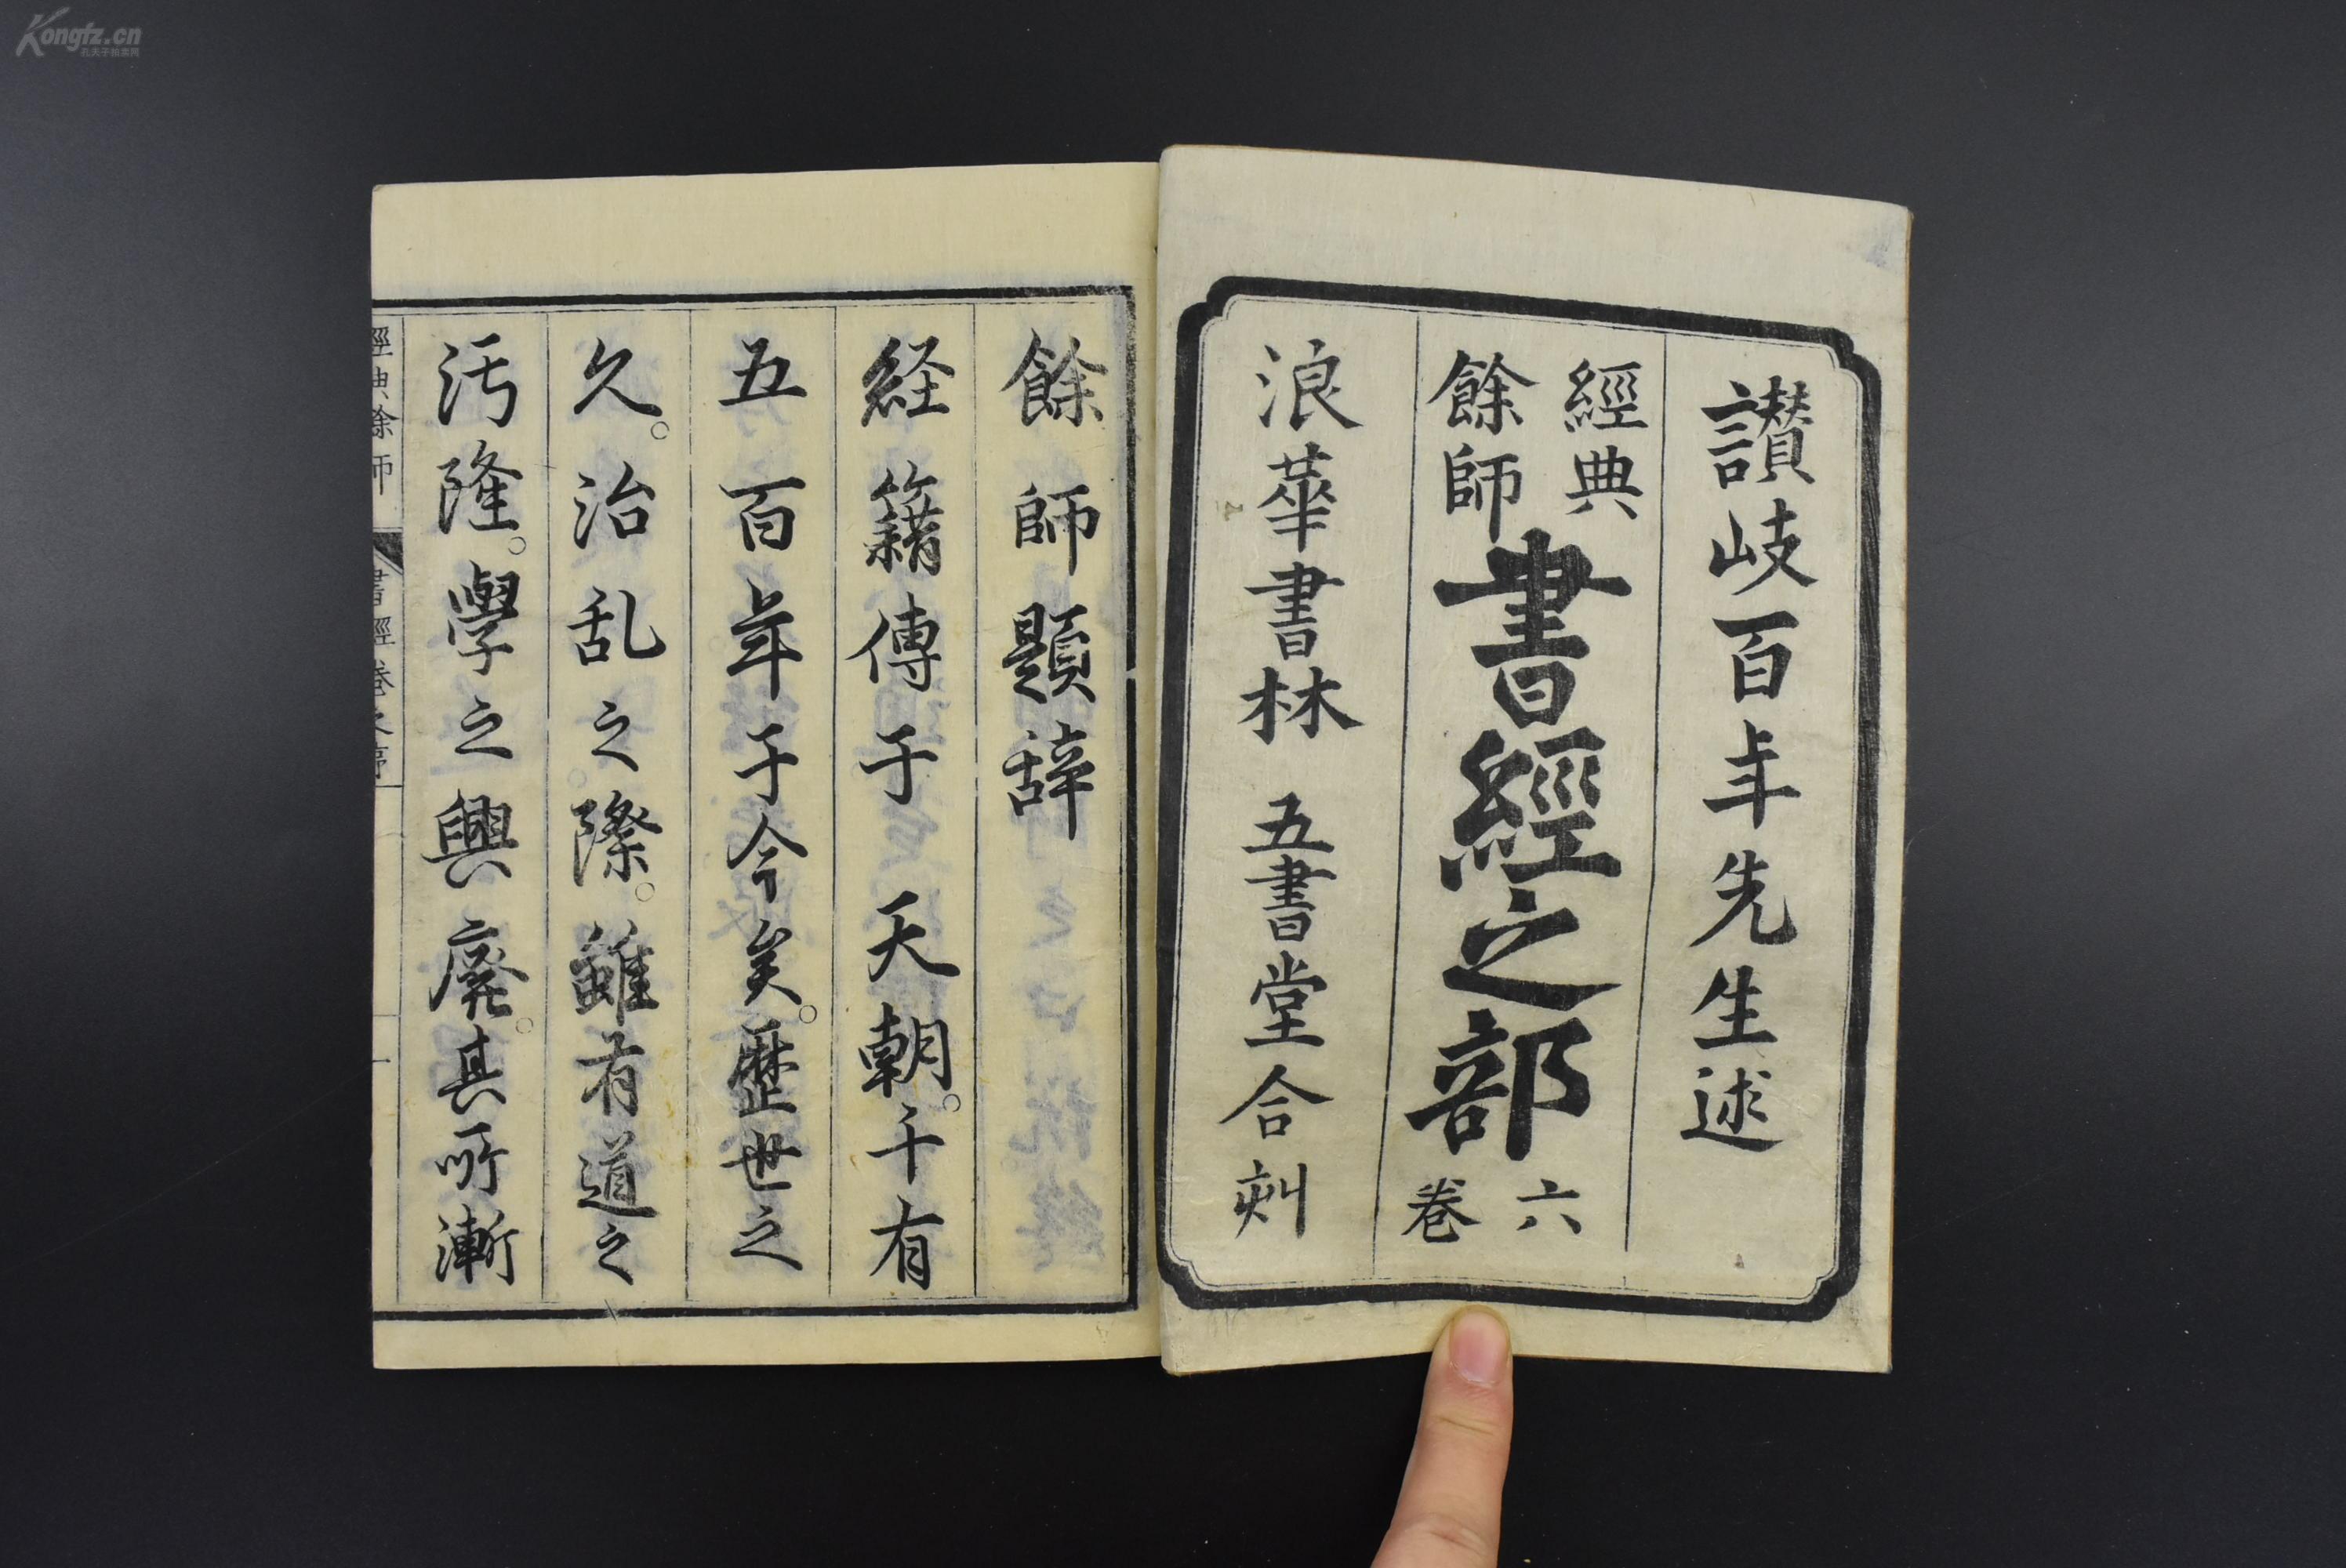 讃岐百年先生述
經典
餘師
書經之部
六
巻
浪華書林 五書堂合刻
餘師題辞
経籍傳于 天朝。千有
五百年于今矣。歴世之
久。治乱之際。雖有道之
汚隆。學之興廃。其所漸
經典餘師 書經巻之序 一
Kongfz.cn
孔夫子拍卖网